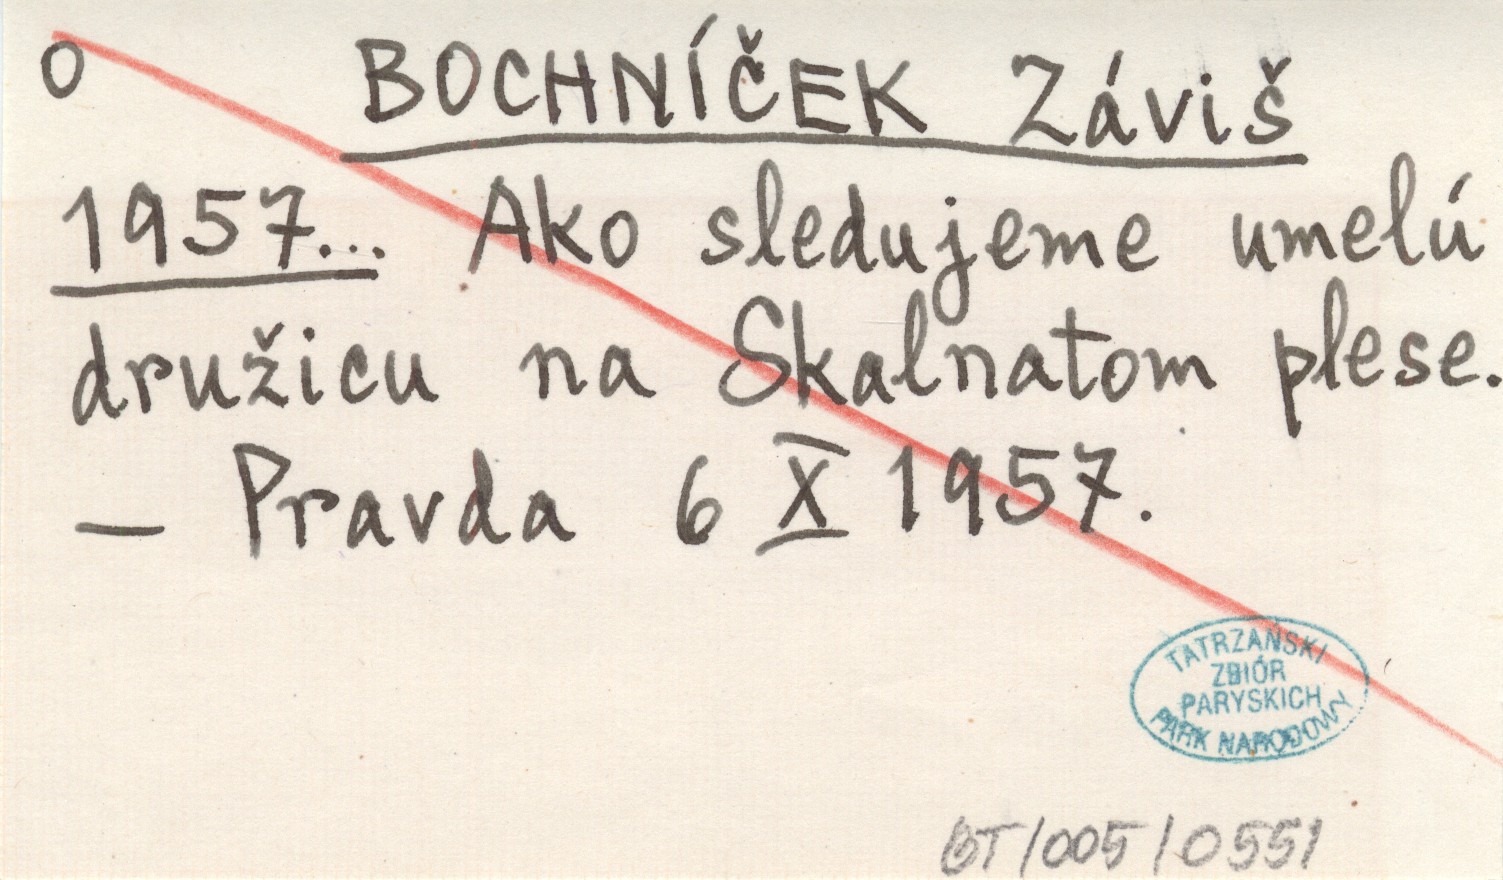 O BOCHNÍČEK Záviš
1957... Ako sledujeme umelú
družicu na Skalnatom plese.
— Pravda 6 X 1957.
TATRZAŃSKI
ZBIÓR
PARYSKICH
PARK NARODOWY
BT/005/0551